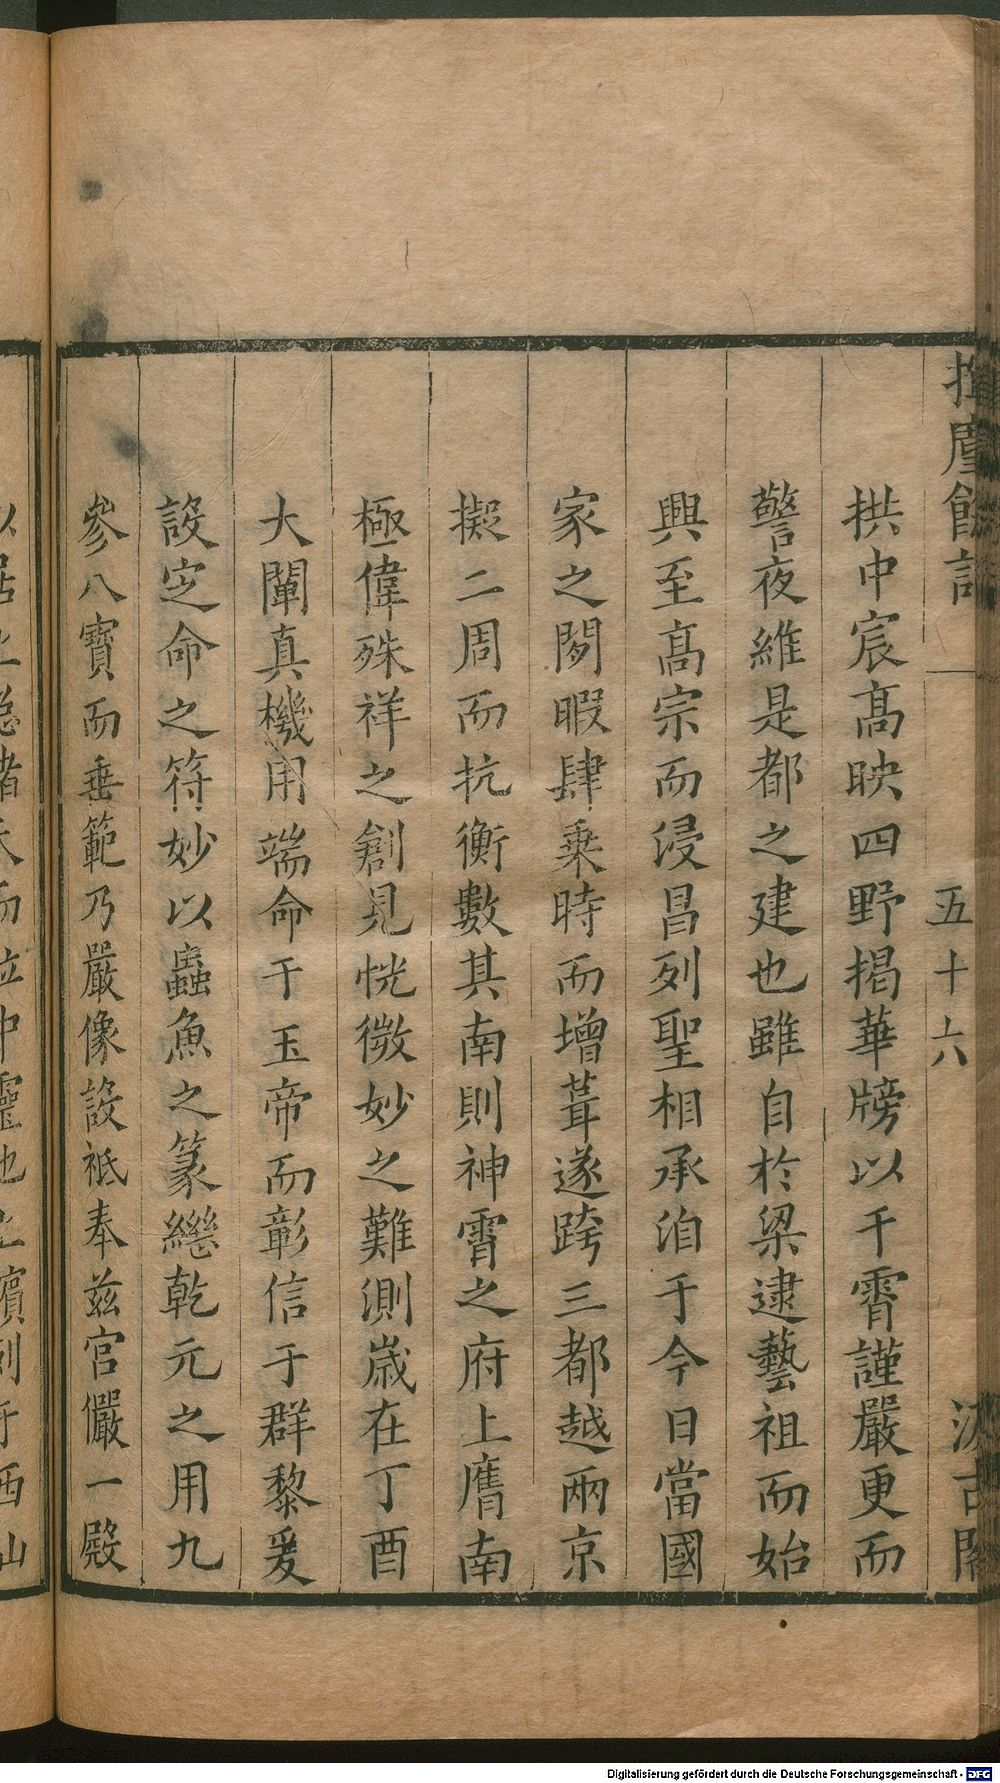 揮麈餘話
五十六
汲古閣
拱中宸高映四野揭華牓以千霄謹嚴更而
警夜維是都之建也雖自於梁逮藝祖而始
興至高宗而浸昌列聖相承洎于今日當國
家之閒暇肆乗時而增葺遂跨三都越兩京
擬二周而抗衡數其南則神霄之府上膺南
極偉殊祥之創見恍微妙之難測歲在丁酉
大闡真機用端命于玉帝而彰信于群黎爰
設定命之符妙以蟲魚之篆繼乾元之用九
參八寶而垂範乃嚴像設祗奉兹宫儼一殿